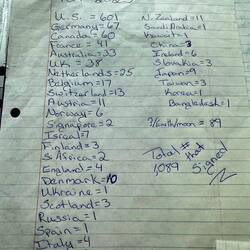 U.S. = 601
Germany = 67
Canada = 60
France = 41
Australia = 33
U.K = 38
Netherlands = 25
Belgium = 17
Switzerland = 13
Austria = 11
Norway = 6
Signapore = 2
Isreal = 7
Finland = 3
S. Africa = 2
England = 4
Denmark = 10
Ukraine = 1
Scotland = 3
Russia = 1
Spain = 1
Italy = 4
N. Zealand = 11
Saudi Arabia = 1
Kuwait = 1
China = 3
Ireland = 6
Slovakia = 3
Japan = 9
Taiwan = 3
Korea = 1
Bangladesh = 1
?/earth/moon = 89
Total # that
1,089 signed